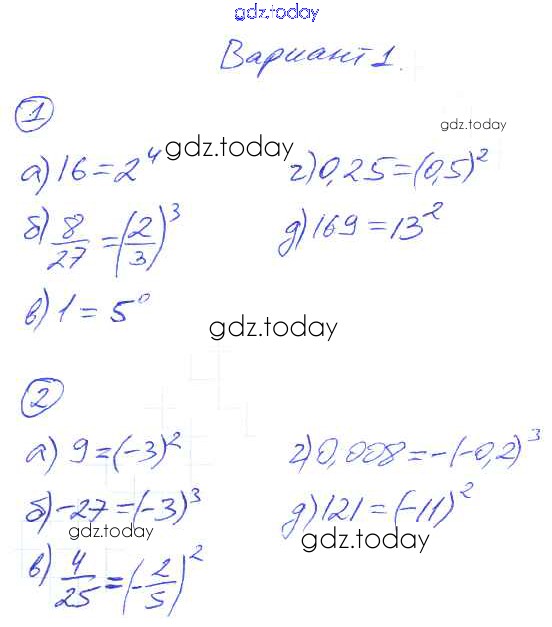 gdz.today
Вариант 1.
1
gdz.today
а) 16 = 2⁴ gdz.today г) 0,25 = (0,5)²
б) 8/27 = (2/3)³ д) 169 = 13²
в) 1 = 5⁰ gdz.today
2
а) 9 = (-3)² г) 0,008 = -(-0,2)³
б) -27 = (-3)³ д) 121 = (-11)²
gdz.today gdz.today
в) 4/25 = (-2/5)²